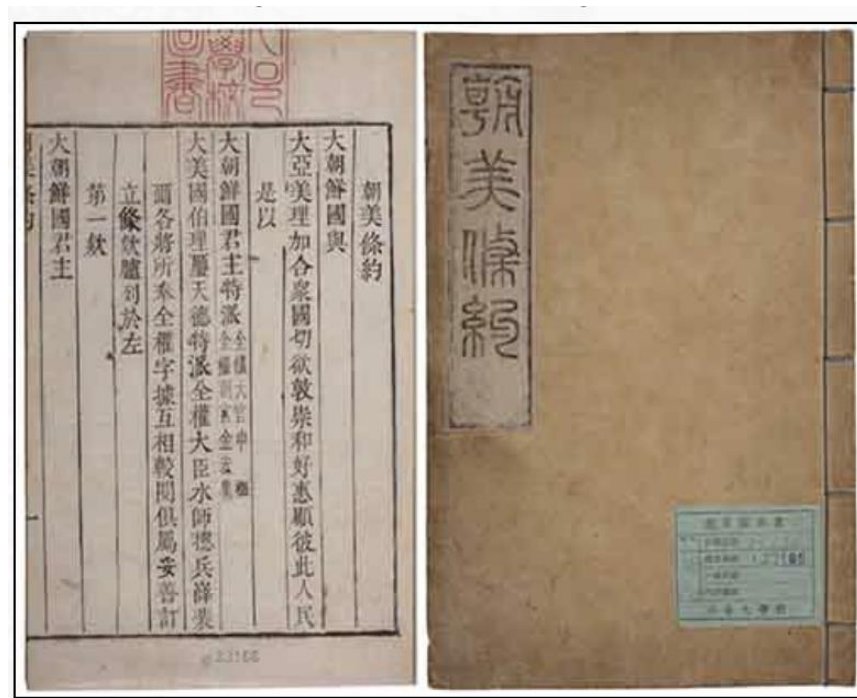 朝美條約
朝美條約
大朝鮮國與
大亞美理加合衆國切欲敦崇和好惠顧彼此人民
是以
大朝鮮國君主特派全權大官申櫶
全權副官金宏集
大美國伯理璽天德特派全權大臣水師摠兵薛裴
爾各將所奉全權字據互相較閱俱屬妥善訂
立條欵臚列於左
第一欵
大朝鮮國君主
美條約 一
學校
圖書
23166